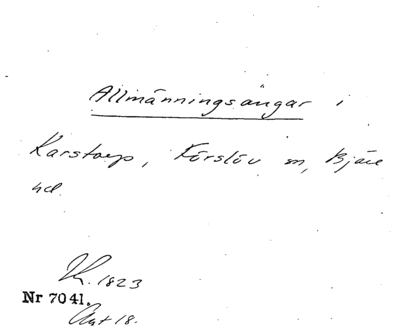 Allmänningsängar i
Karstorp, Förslöv sn, Bjäre
hd.
1823
Nr 7041.
Art 18.